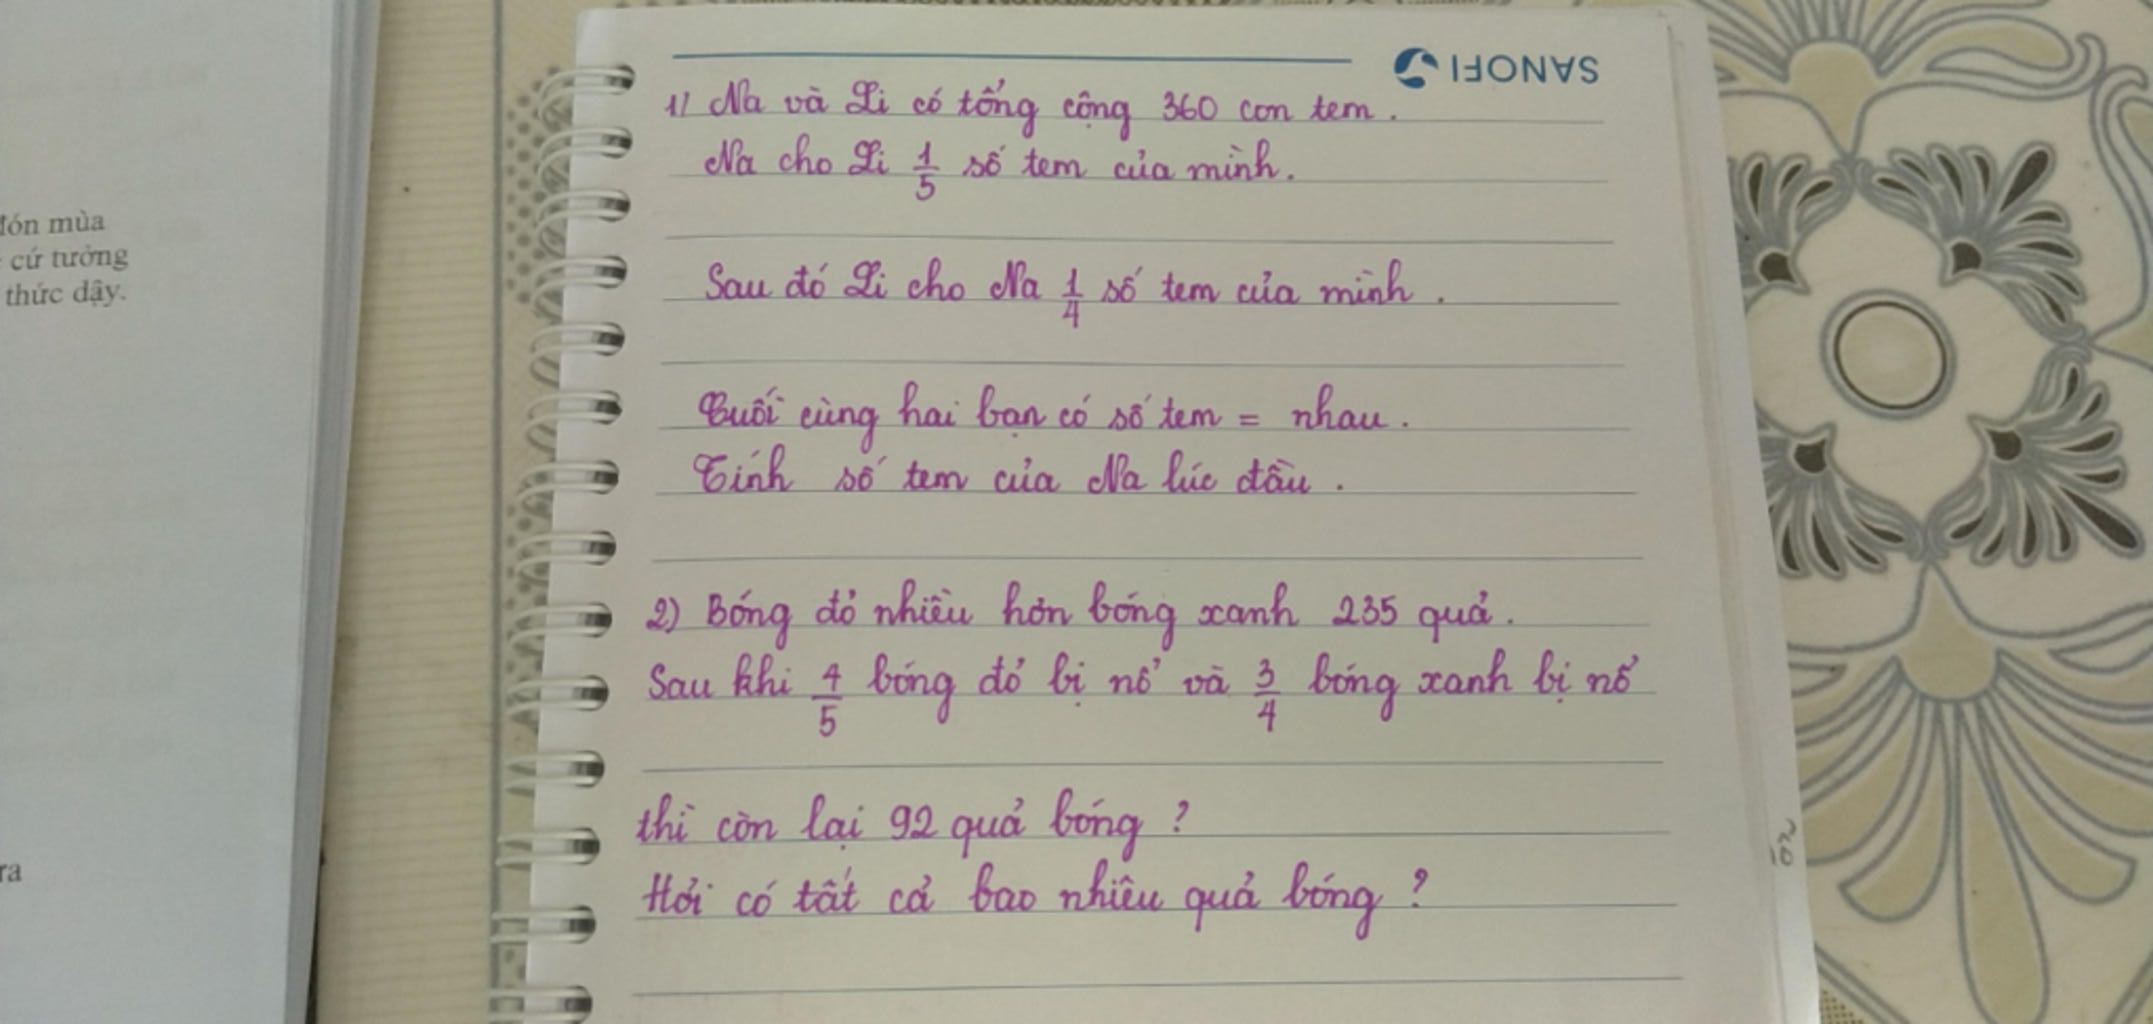 đón mùa
cứ tưởng
thức dậy.
ra
SANOFI
1) Na và Li có tổng cộng 360 con tem.
Na cho Li 1/5 số tem của mình.
Sau đó Li cho Na 1/4 số tem của mình.
Cuối cùng hai bạn có số tem = nhau.
Tính số tem của Na lúc đầu.
2) Bóng đỏ nhiều hơn bóng xanh 235 quả.
Sau khi 4/5 bóng đỏ bị nổ và 3/4 bóng xanh bị nổ
thì còn lại 92 quả bóng?
Hỏi có tất cả bao nhiêu quả bóng?